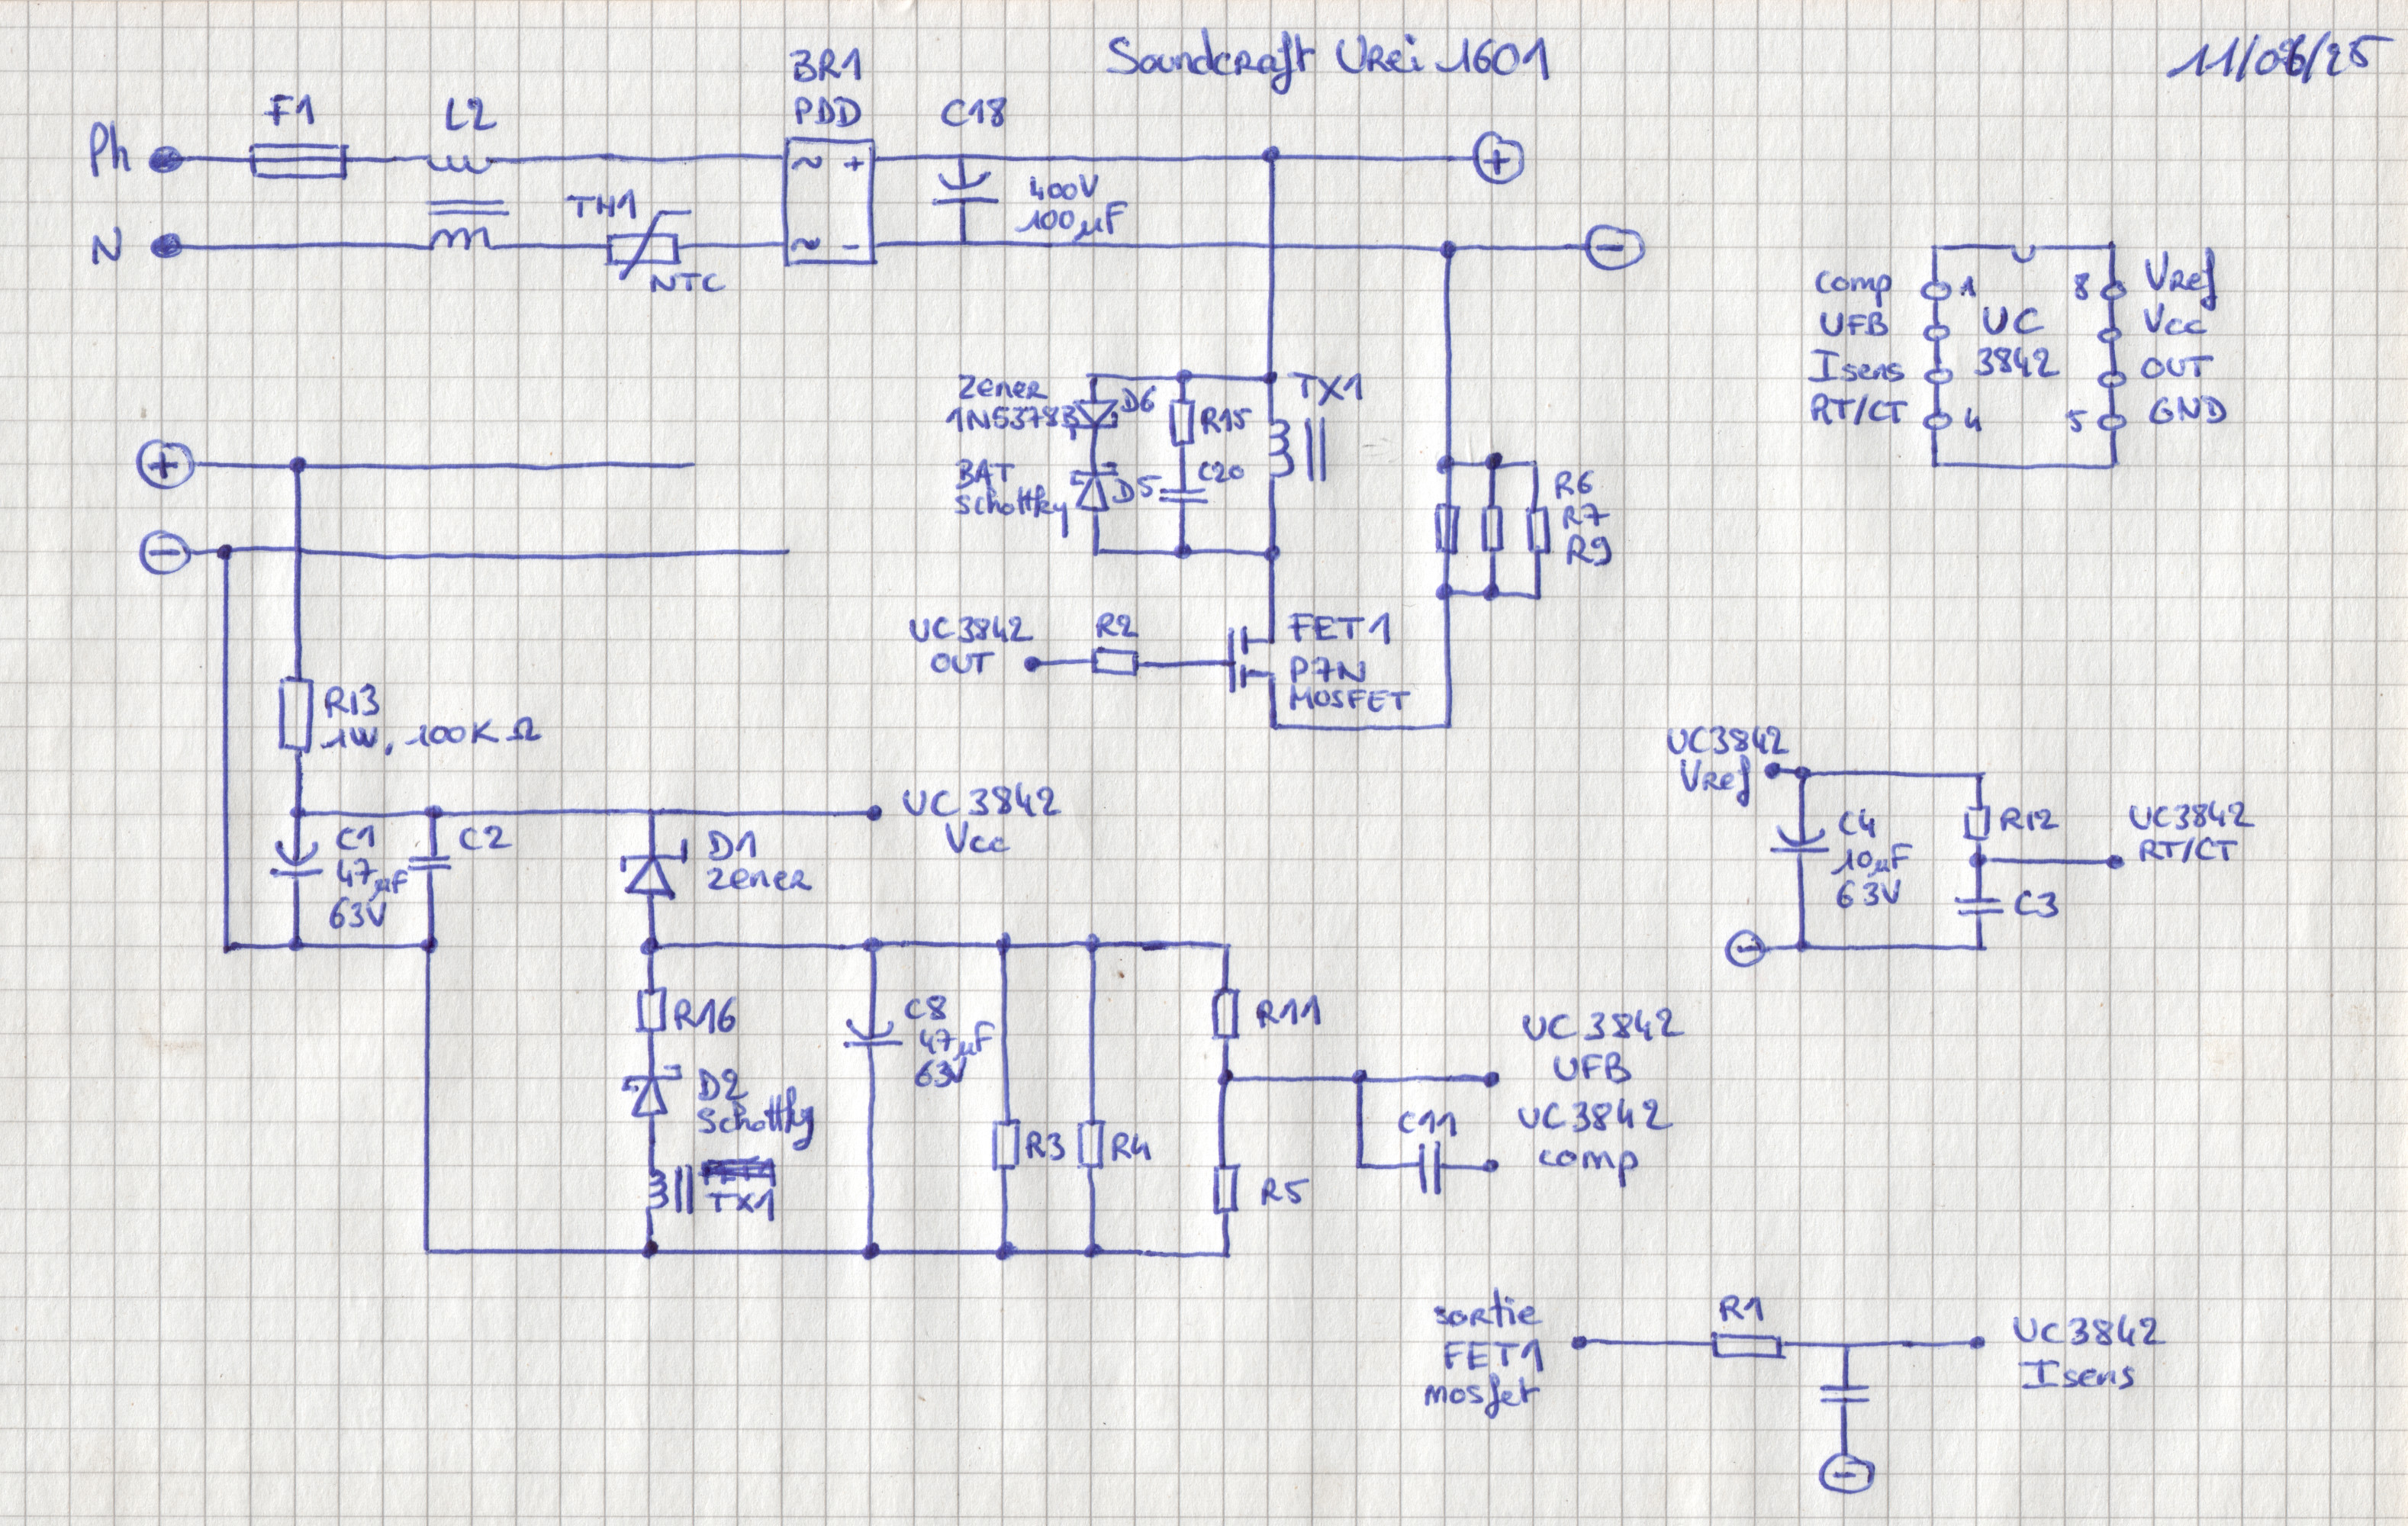 Soundcraft Urei 1601
11/06/25
BR1
PDD
F1
L2
C18
Ph
~ +
400V
100µF
TH1
N
~ -
NTC
+
-
Comp 1 8 Vref
UFB UC Vcc
Isens 3842 OUT
RT/CT 4 5 GND
Zener D6
1N5378B
R15
TX1
BAT D5
Schottky
C20
R6
R7
R9
+
-
UC3842
OUT
R2
FET1
P7N
MOSFET
R13
1W, 100KΩ
UC3842
Vref
C1
47µF
63V
C2
D1
Zener
UC3842
Vcc
C4
10µF
63V
R12
UC3842
RT/CT
C3
-
R16
C8
47µF
63V
R11
UC3842
UFB
D2
Schottky
R3
R4
C11
UC3842
comp
TX1
R5
sortie
FET1
mosfet
R1
UC3842
Isens
-